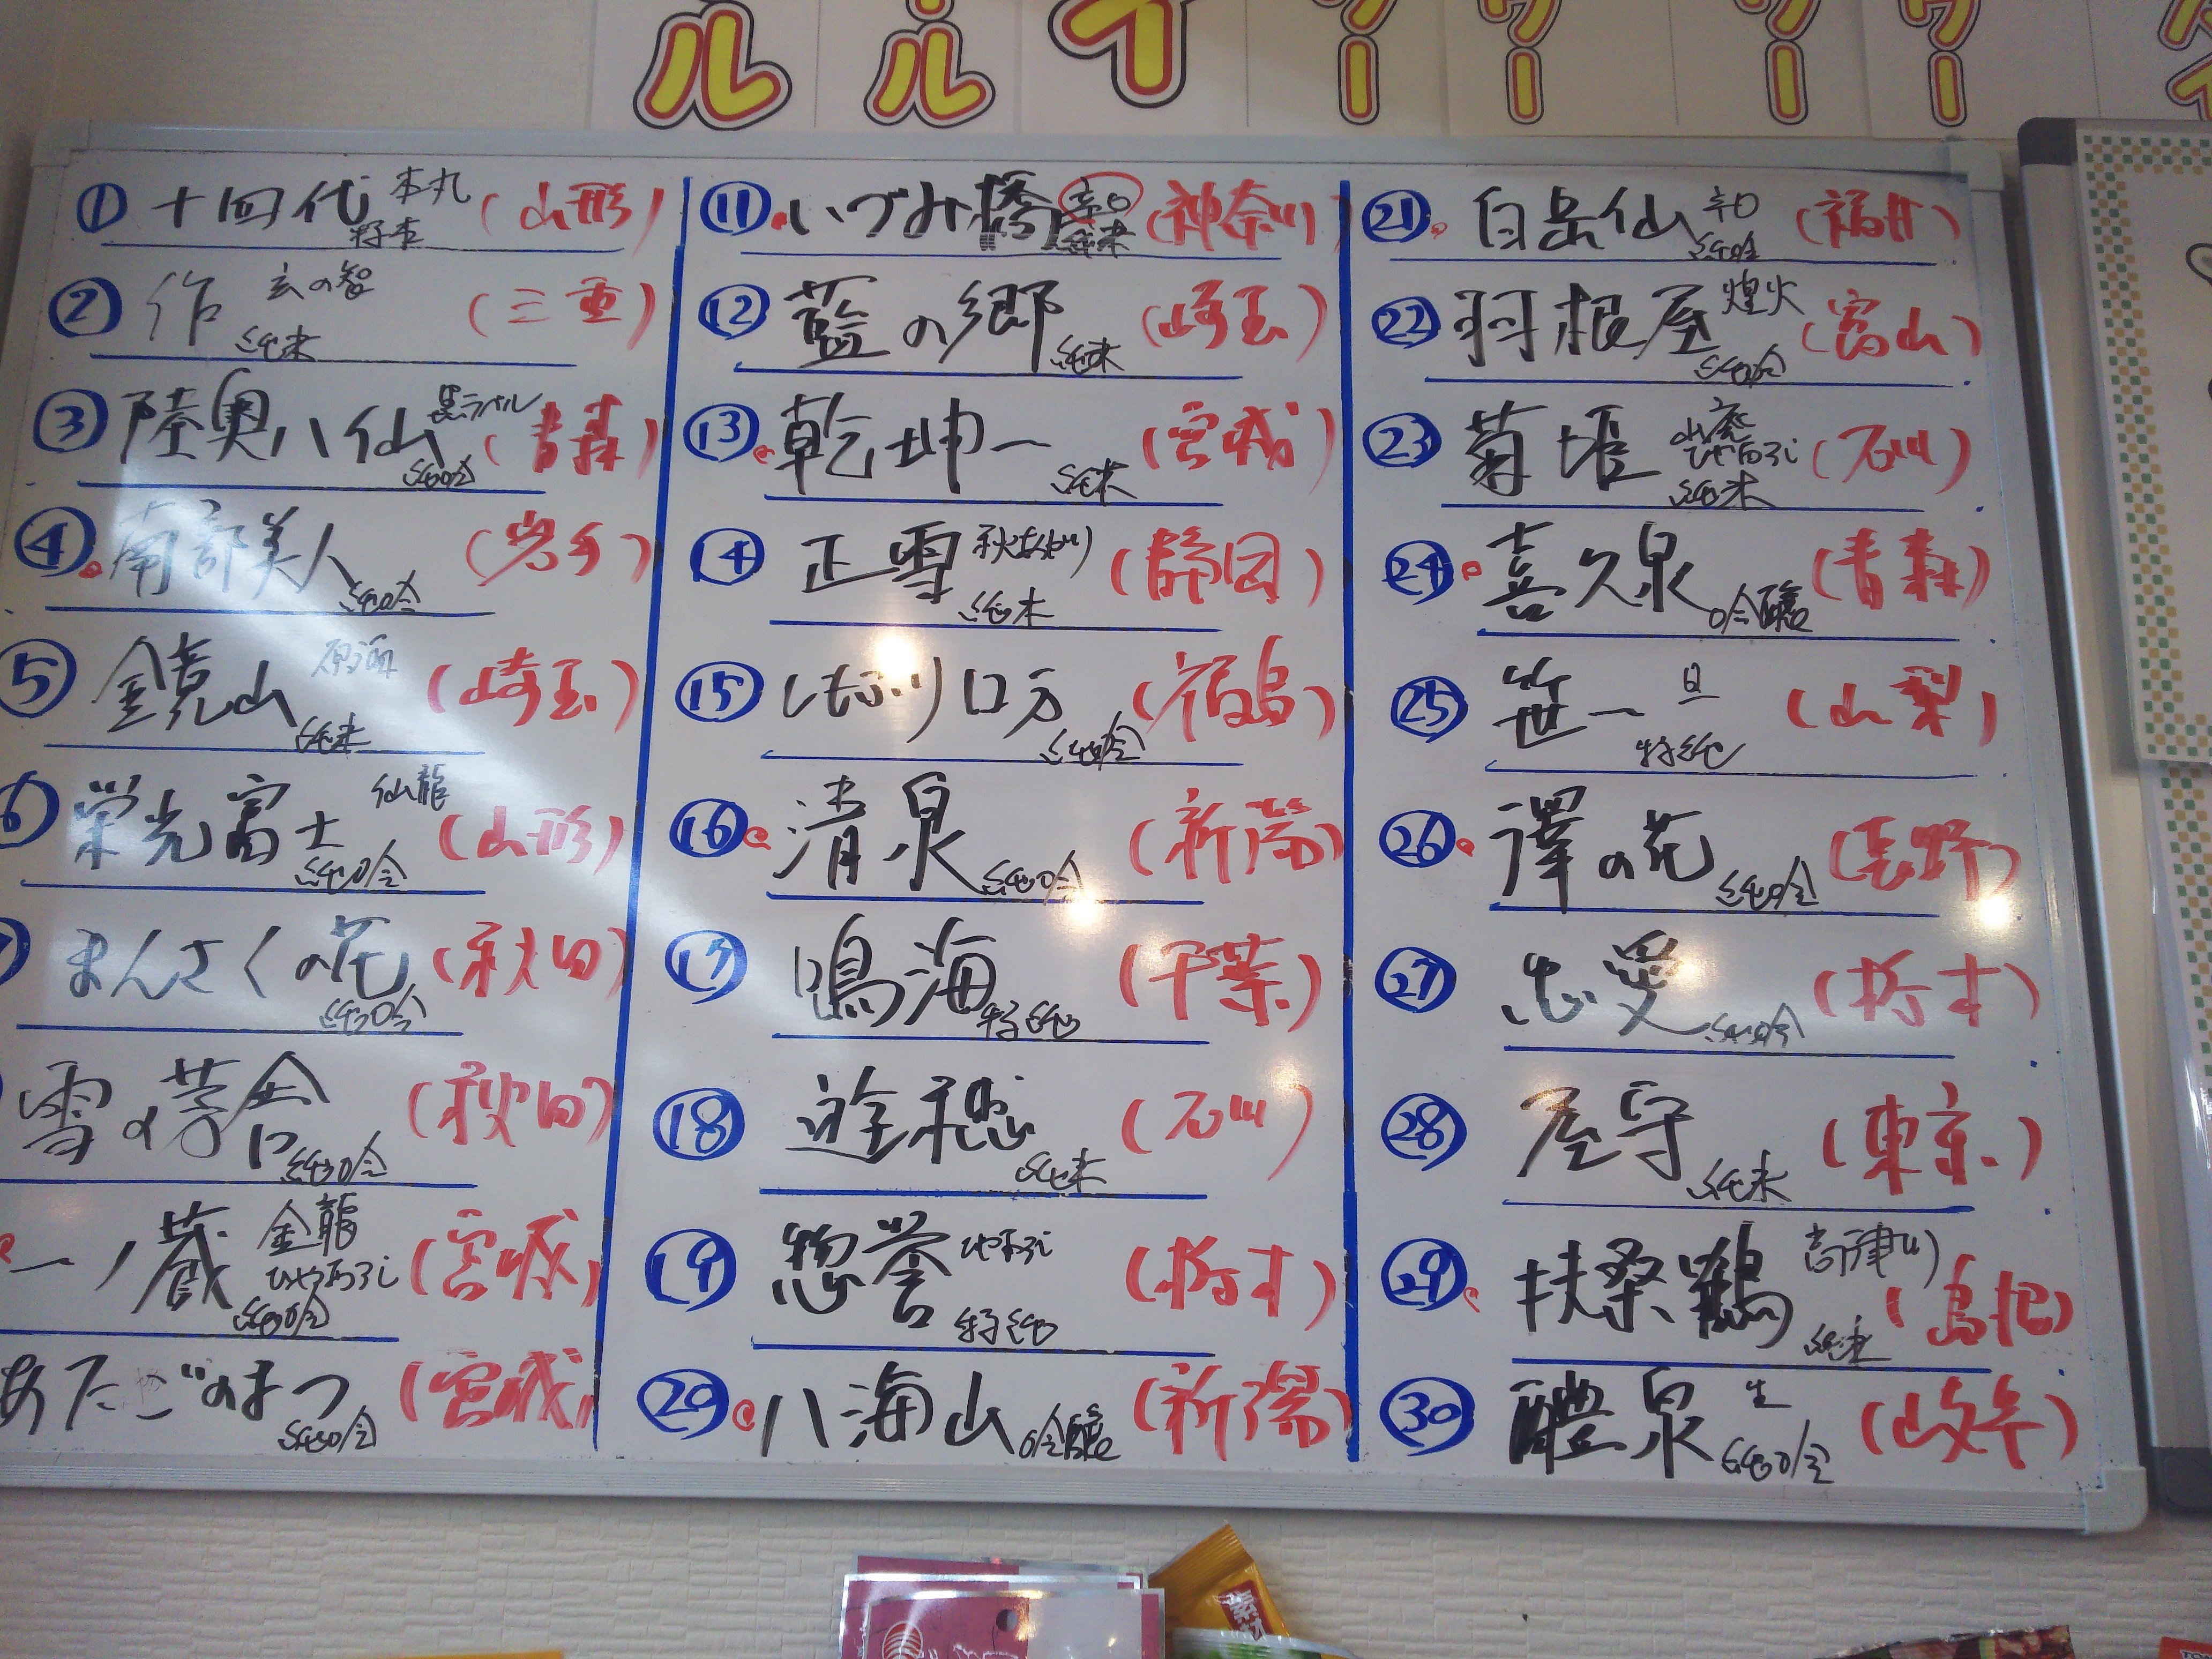 ル
ール
イ
ワー
ワー
ワー
ワー
① 十四代 本丸 特本 (山形)
② 作 玄の智 純米 (三重)
③ 陸奥八仙 黒ラベル 純吟 (青森)
④ 南部美人 純吟 (岩手)
⑤ 鏡山 原酒 純米 (埼玉)
⑥ 栄光富士 仙龍 純吟 (山形)
まんさくの花 純吟 (秋田)
雪の茅舎 純吟 (秋田)
一ノ蔵 金龍 ひやおろし 純吟 (宮城)
あたごのまつ 純吟 (宮城)
⑪ いづみ橋 辛口 純米 (神奈川)
⑫ 藍の郷 純米 (埼玉)
⑬ 乾坤一 純米 (宮城)
⑭ 正雪 秋あがり 純米 (静岡)
⑮ ロ万 純吟 (福島)
⑯ 清泉 純吟 (新潟)
⑰ 鳴海 特純 (千葉)
⑱ 遊穂 純米 (石川)
⑲ 惣誉 ひやおろし 特純 (栃木)
⑳ 八海山 吟醸 (新潟)
㉑ 白岳仙 辛口 純吟 (福井)
㉒ 羽根屋 煌火 純吟 (富山)
㉓ 菊姫 山廃 ひやおろし 純米 (石川)
㉔ 喜久泉 吟醸 (青森)
㉕ 笹一 旦 特純 (山梨)
㉖ 澤の花 純吟 (長野)
㉗ 忠愛 純吟 (栃木)
㉘ 屋守 純米 (東京)
㉙ 扶桑鶴 高津川 純米 (島根)
㉚ 醴泉 生 純吟 (岐阜)
素材